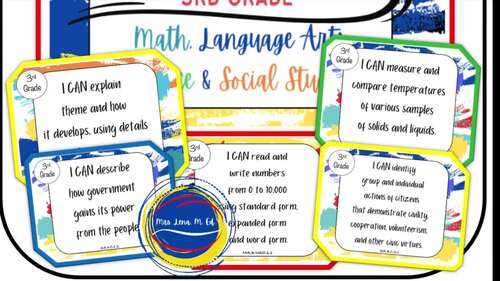 3RD GRADE
Math, Language Arts
& Social Stu
3rd
Grade
I CAN explain
theme and how
it develops, using details
3rd
Grade
I CAN measure and
compare temperatures
of various samples
of solids and liquids.
3rd
Grade
I CAN describe
how government
gains its power
from the people
3rd
Grade
I CAN read and
write numbers
from 0 to 10,000
using standard form,
expanded form
and word form.
3rd
Grade
I CAN identify
group and individual
actions of citizens
that demonstrate civility,
cooperation, volunteerism,
and other civic virtues.
Mrs Lena, M. Ed